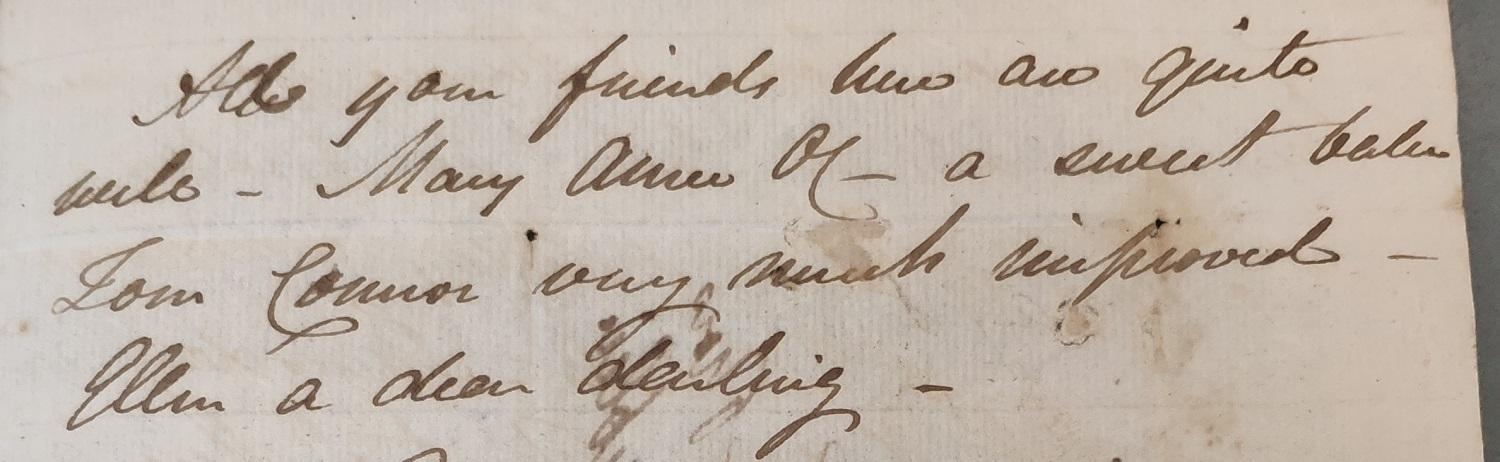 All your friends here are quite
well - Mary Anne OC - a sweet
Tom Connor very much improved -
Ellen a dear darling -